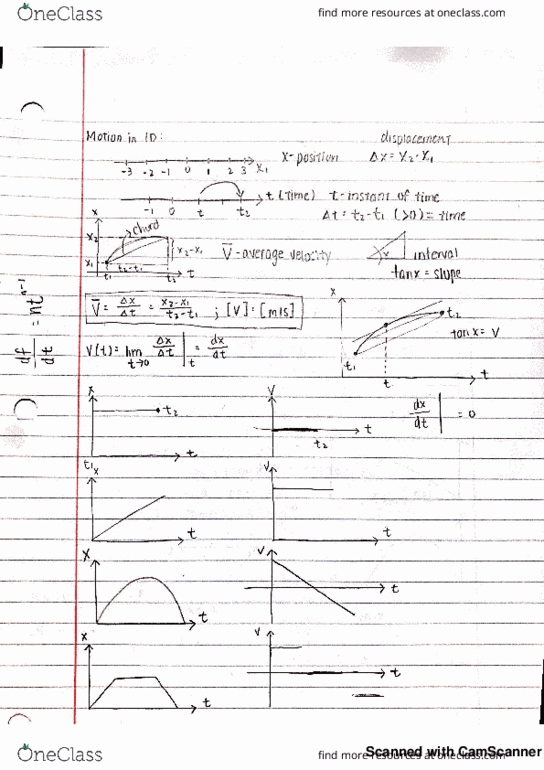 OneClass
find more resources at oneclass.com
Motion in 1D:
displacement
-3 -2 -1 0 1 2 3 x₁
X-position Δx = x₂-x₁
-1 0 t t₂ t (time) t-instant of time
Δt = t₂-t₁ (>0) = time
x
chord
x₂
x₂-x₁
x₁
t₂-t₁
t₁ t₂ t
V̄-average velocity
interval
tan α = slope
V̄ = Δx/Δt = x₂-x₁/t₂-t₁ ; [V] = [m/s]
df/dt = nt^n-1
V(t) = lim t→0 Δx/Δt |t = dx/dt
x
t₂
tan α = V
t₁
t
t
x
t₂
t₁
t
V
t
t₂
dx/dt | = 0
x
t
V
t
x
t
V
t
x
t
V
t
OneClass
find more resources at oneclass.com
Scanned with CamScanner